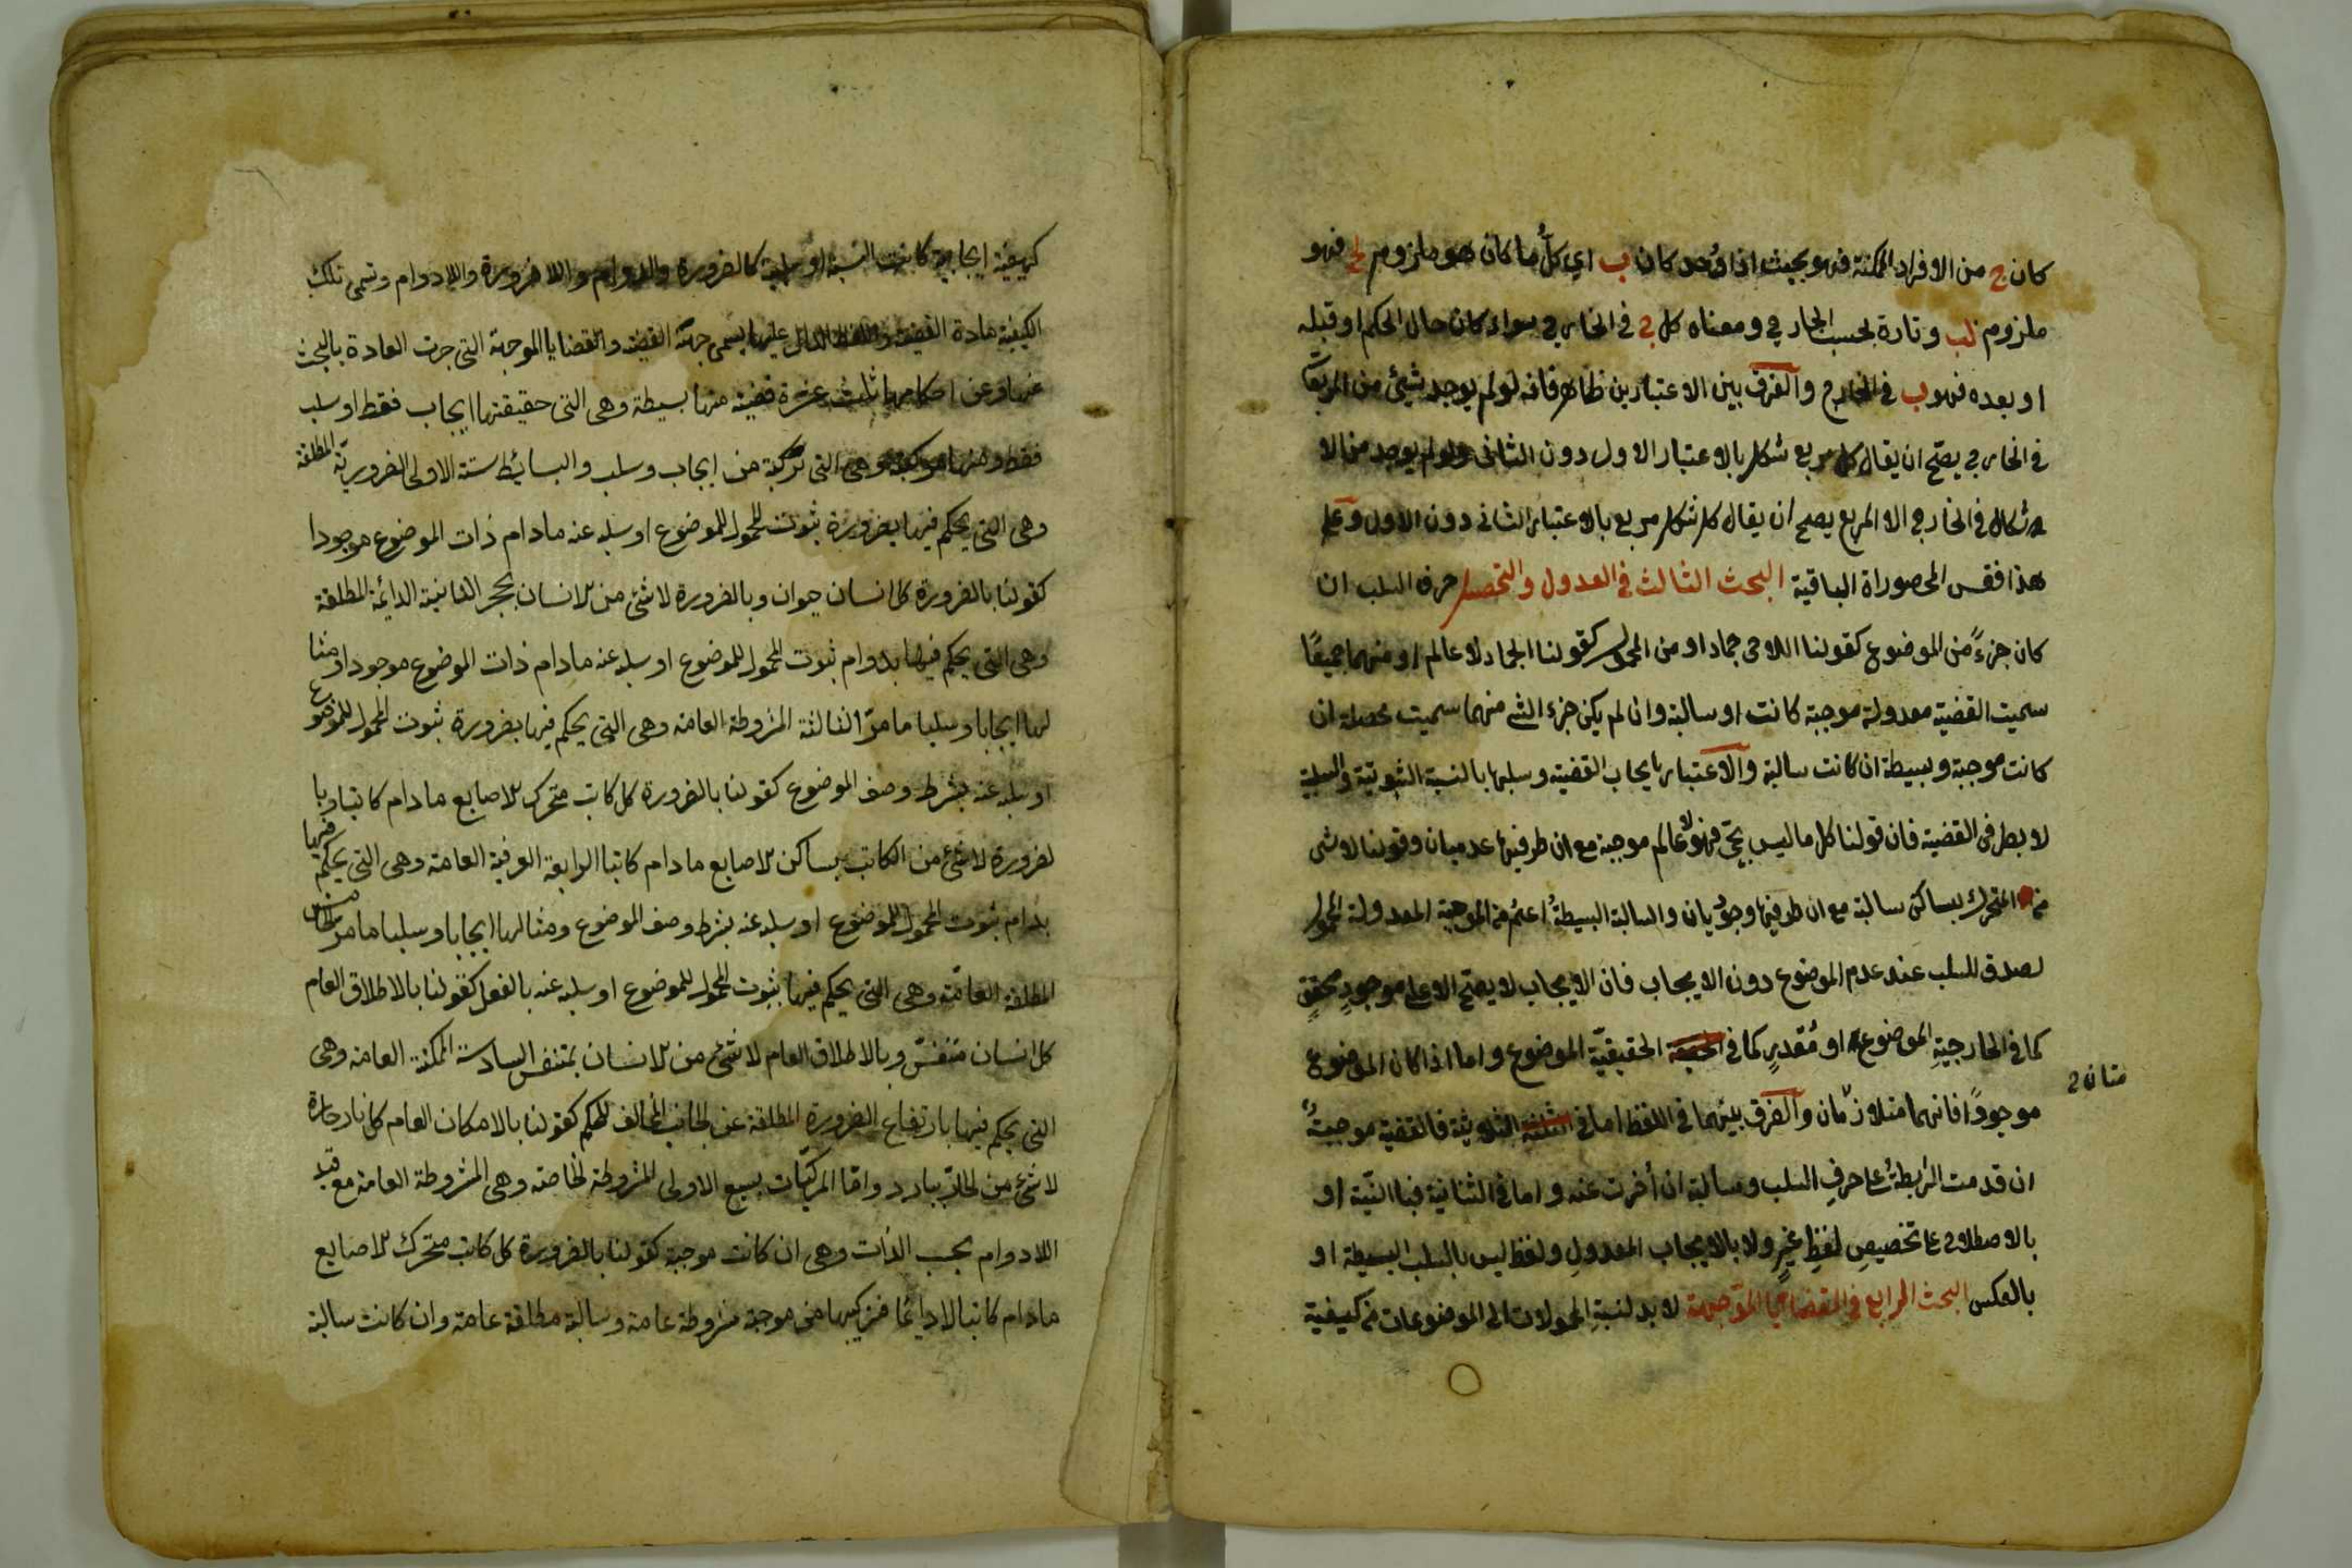 كان ج من الافراد الممكنة فهو بحيث اذا وُجد كان ب اي كلُّ ما كان هو ملزوم لج فهو
ملزوم لب وتارة بحسب الخارج ومعناه كل ج في الخارج سواء كان حال الحكم او قبله
او بعده فهو ب في الخارج والفرق بين الاعتبارين ظاهر فانه لو لم يوجد شيئ من المربعات
في الخارج يصح ان يقال كل مربع شكل بالاعتبار الاول دون الثاني ولو لم يوجد من الا
لاشكال في الخارج الا المربع يصح ان يقال كل شكل مربع بالاعتبار الثاني دون الاول وعلى
هذا فقس المحصوراة الباقية البحث الثالث في العدول والتحصيل حرف السلب ان
كان جزءً من الموضوع كقولنا اللاحى جماد او من المحمول كقولنا الجماد لا عالم او منهما جميعًا
سميت القضية معدولة موجبة كانت او سالبة وان لم يكن جزء الشى منهما سميت محصلة ان
كانت موجبة وبسيطة ان كانت سالبة والاعتبار بايجاب القضية وسلبها بالنسبة الثبوتية والسلبية
لا بطرفى القضية فان قولنا كل ما ليس بحىّ فهو لا عالم موجبة مع ان طرفيها عدميان وقولنا لا شى
من المتحرك بساكن سالبة مع ان طرفيها وجوديان والسالبة البسيطةُ اعمُّ من الموجبة المعدولة المحمول
لصدق السلب عند عدم الموضوع دون الايجاب فان الايجاب لا يصح الا على موجودٍ محققٍ
كما في الخارجيةِ الموضوع او مُقدرٍ كما في الحقيقيّة الموضوع واما اذا كان الموضوع
موجودًا فانهما متلازمان والفرق بينهما في اللفظ اما في الثلاثية فالقضية موجبةٌ
ان قدمت الرابطةُ على حرفِ السلب وسالبة ان أُخرت عنه واما في الثنائية فبالنيّة او
بالاصطلاح على تخصيصِ لفظِ غيرٍ ولا بالايجاب المعدولِ ولفظ ليس بالسلب البسيطة او
بالعكس البحث الرابع في القضايا الموجهة لا بد لنسبةِ المحمولات الى الموضوعات من كيفية
كيفية ايجابية كانت النسبة او سلبية كالضرورة والدوام واللاضرورة واللادوام وتسمى تلك
الكيفية مادة القضية واللفظ الدال عليها يسمى جهة القضية والقضايا الموجهة التى جرت العادة بالبحث
عنها وعن احكامها ثلث عشرة قضية منها بسيطة وهى التى حقيقتها ايجاب فقط او سلب
فقط ومنها مركبة وهى التى تركبة من ايجاب وسلب والبسائط ستة الاولى الضروريّة المطلقة
وهى التى يحكم فيها بضرورة ثبوت المحمول للموضوع او سلبه عنه مادام ذات الموضوع موجودا
كقولنا بالضرورة كل انسان حيوان وبالضرورة لا شئ من الانسان بحجر الثانية الدائمة المطلقة
وهى التى يحكم فيها بدوام ثبوت المحمول للموضوع او سلبه عنه مادام ذات الموضوع موجودا ومثا
لها ايجابا وسلبا ما مرّ الثالثة المشروطة العامة وهى التى يحكم فيها بضرورة ثبوت المحمول للموضوع
او سلبه عنه بشرط وصف الموضوع كقولنا بالضرورة كل كاتب متحرك الاصابع مادام كاتبا وبا
لضرورة لا شئ من الكاتب بساكن الاصابع مادام كاتبا الرابعة العرفية العامة وهى التى يحكم فيها
بدوام ثبوت المحمول للموضوع او سلبه عنه بشرط وصف الموضوع ومثالها ايجابا وسلبا ما مر الخامسة
المطلقة العامّة وهى التى يحكم فيها بثبوت المحمول للموضوع او سلبه عنه بالفعل كقولنا بالاطلاق العام
كل انسان متنفسّ وبالاطلاق العام لا شئ من الانسان بمتنفس السادسة الممكنة العامة وهى
التى يحكم فيها بارتفاع الضرورة المطلقة عن الجانب المخالف للحكم كقولنا بالامكان العام كل نار حارة
لا شئ من الحارّ ببارد وامّا المركبّات بسبع الاولى المشروطة الخاصة وهى المشروطة العامة مع قيد
اللادوام بحسب الذات وهى ان كانت موجبة كقولنا بالضرورة كل كاتب متحرك الاصابع
مادام كاتبا لا دايما فتركيبها من موجبة مشروطة عامة وسالبة مطلقة عامة وان كانت سالبة